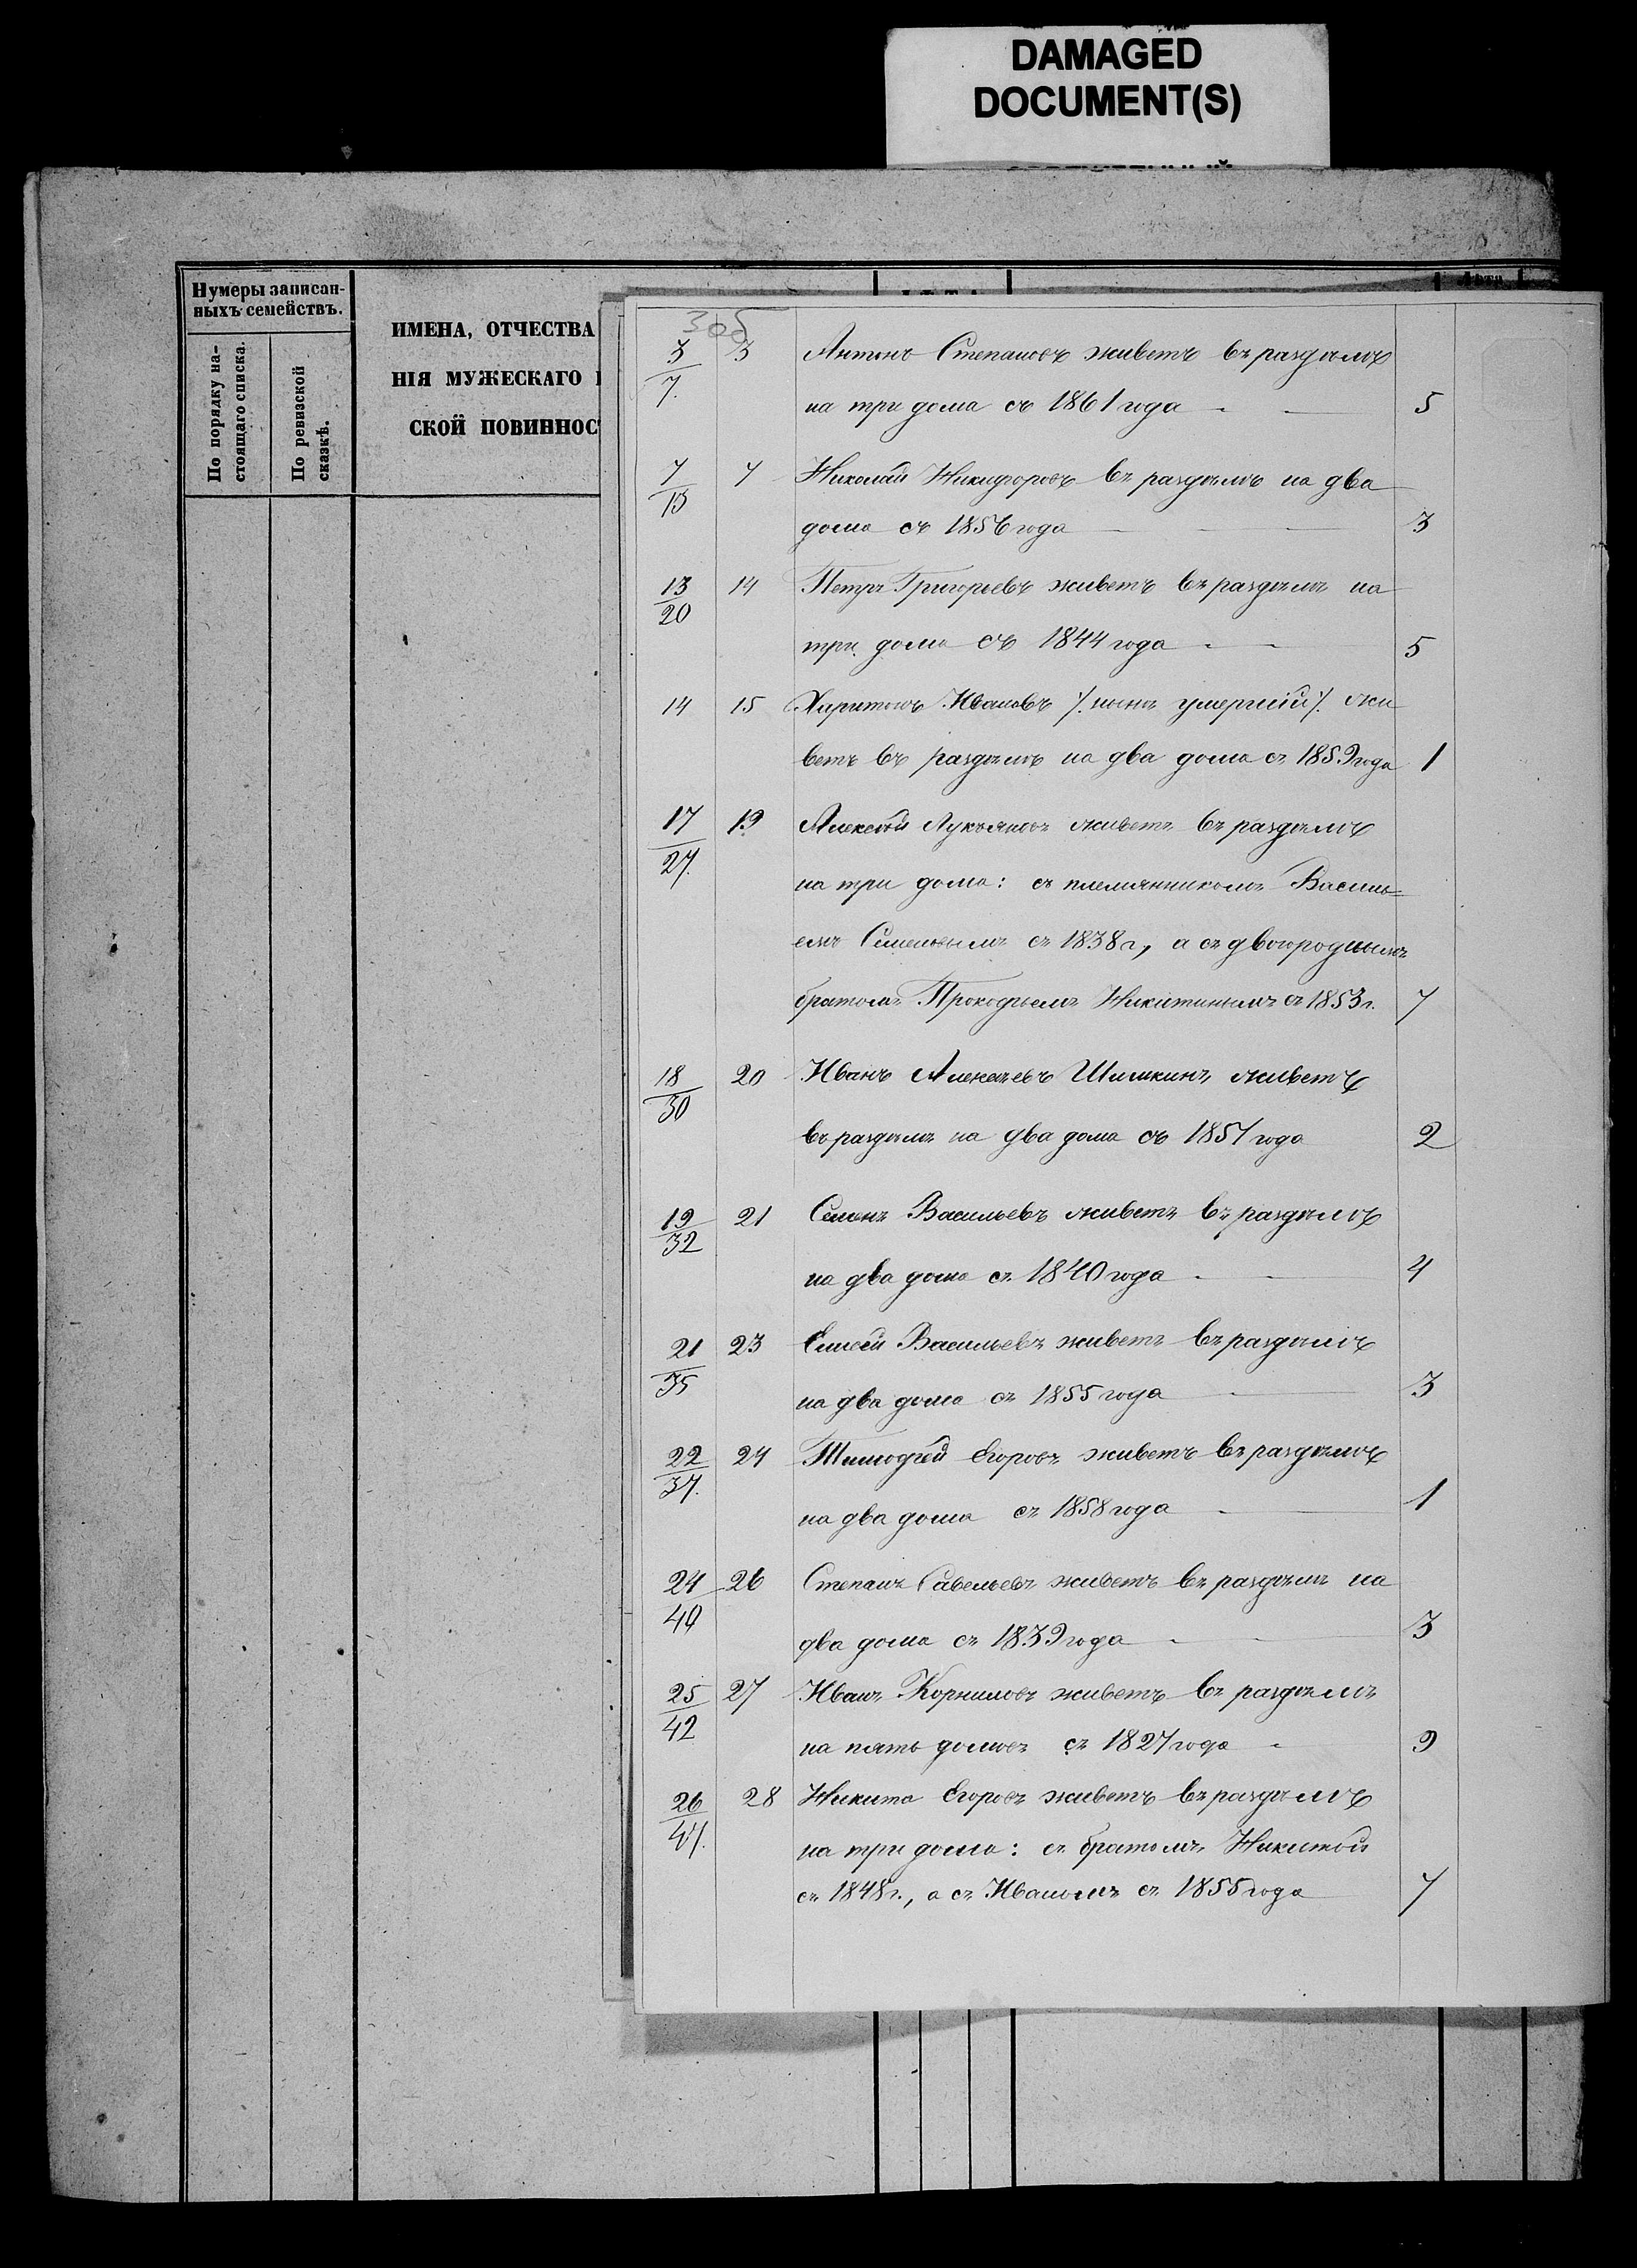 DAMAGED
DOCUMENT(S)
Нумеры записан-
ныхъ семействъ.
По порядку на-
стоящаго списка.
По ревизской
сказкѣ.
ИМЕНА, ОТЧЕСТВА
НІЯ МУЖЕСКАГО
СКОЙ ПОВИННОС
Лѣта
3/7. 3 Антонъ Степановъ живетъ въ раздѣлѣ
на три дома съ 1861 года - - 5
7/13 7 Николай Никифоровъ въ раздѣлѣ на два
дома съ 1856 года 3
13/20 14 Петръ Григорьевъ живетъ въ раздѣлѣ на
три дома съ 1844 года - - 5
14 15 Харитонъ Ивановъ /. нынѣ умершій /. жи
ветъ въ раздѣлѣ на два дома съ 1859 года 1
17/27. 19 Алексѣй Лукьяновъ живетъ въ раздѣлѣ
на три дома: съ племянникомъ Василь=
емъ Семеновымъ съ 1838 г., а съ двоюроднымъ
братомъ Прокофьемъ Никитинымъ съ 1853 г. 7
18/30 20 Иванъ Алексѣевъ Шишкинъ живетъ
въ раздѣлѣ на два дома съ 1857 года 2
19/32 21 Семенъ Васильевъ живетъ въ раздѣлѣ
на два дома съ 1840 года - - 4
21/35 23 Елисей Васильевъ живетъ въ раздѣлѣ
на два дома съ 1855 года - 3
22/37. 24 Тимофей Егоровъ живетъ въ раздѣлѣ
на два дома съ 1858 года - 1
24/40 26 Степанъ Савельевъ живетъ въ раздѣлѣ на
два дома съ 1839 года - - 3
25/42 27 Иванъ Корниловъ живетъ въ раздѣлѣ
на пять домовъ съ 1827 года - 9
26/47. 28 Никита Егоровъ живетъ въ раздѣлѣ
на три дома: съ братомъ Никитой
съ 1848 г., а съ Иваномъ съ 1855 года 7